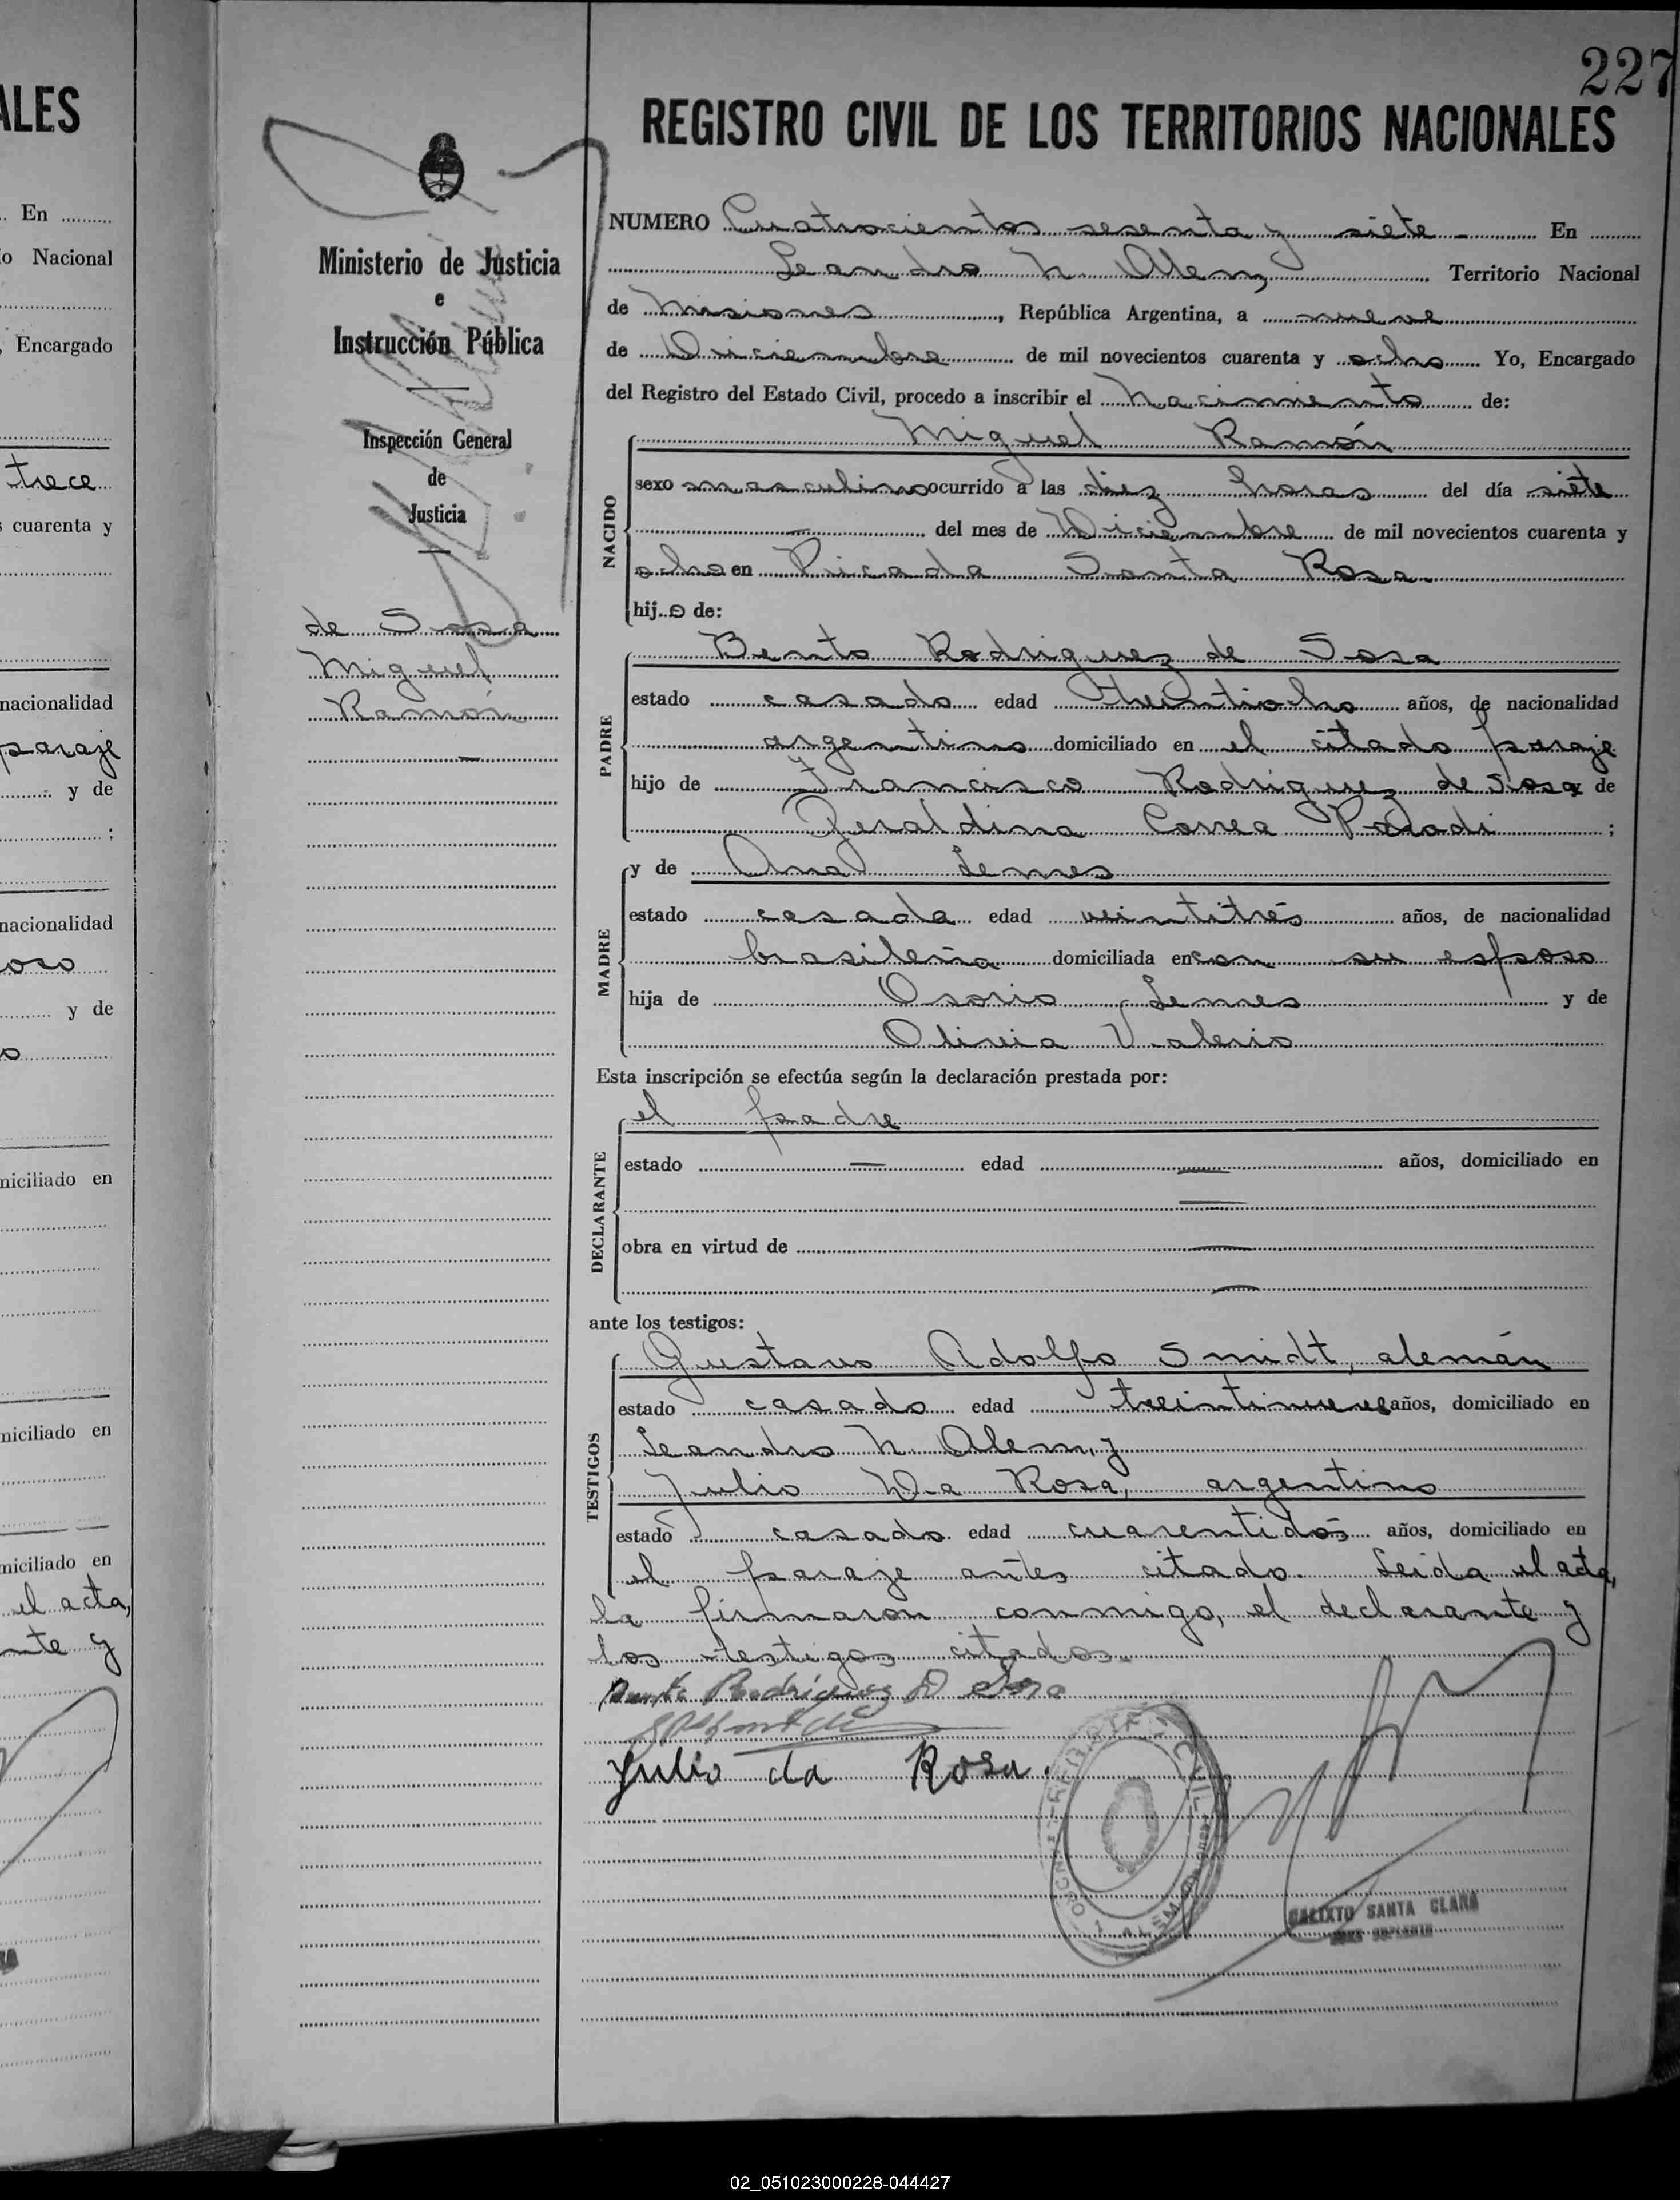 227
ALES
REGISTRO CIVIL DE LOS TERRITORIOS NACIONALES
En
o Nacional
Encargado
trece
s cuarenta y
nacionalidad
paraje
y de
;
nacionalidad
oso
y de
o
niciliado en
niciliado en
niciliado en
el acta,
nte y
Ministerio de Justicia
e
Instrucción Pública
Inspección General
de
Justicia
de Sosa
Miguel
Ramón
NUMERO Cuatrocientos sesenta y siete En
Leandro N. Alem, Territorio Nacional
de Misiones, República Argentina, a nueve
de Diciembre de mil novecientos cuarenta y ocho Yo, Encargado
del Registro del Estado Civil, procedo a inscribir el Nacimiento de:
NACIDO
Miguel Ramón
sexo masculino ocurrido a las diez horas del día siete
del mes de Diciembre de mil novecientos cuarenta y
ocho en Picada Santa Rosa.
hijo de:
PADRE
Bento Rodriguez de Sosa
estado casado edad treintiocho años, de nacionalidad
argentino domiciliado en el citado paraje
hijo de Francisco Rodriguez de Sosa y de
Geraldina Correa ;
MADRE
y de Ana Lemes
estado casada edad veintitrés años, de nacionalidad
brasileña domiciliada en con su esposo
hija de Osorio Lemes y de
Olivia Valerio
Esta inscripción se efectúa según la declaración prestada por:
DECLARANTE
el padre
estado — edad — años, domiciliado en
—
obra en virtud de —
—
ante los testigos:
TESTIGOS
Gustavo Adolfo Smidt, alemán
estado casado edad treintinueve años, domiciliado en
Leandro N. Alem, y
Julio Da Rosa, argentino
estado casado edad cuarentidós años, domiciliado en
el paraje antes citado. Leida el acta,
la firmaron conmigo, el declarante y
los testigos citados.
Bento Rodriguez D Sosa
Julio da Rosa.
CIVIL
ALEM
CALIXTO SANTA CLARA
JEFE SUPLENTE
02_051023000228-044427